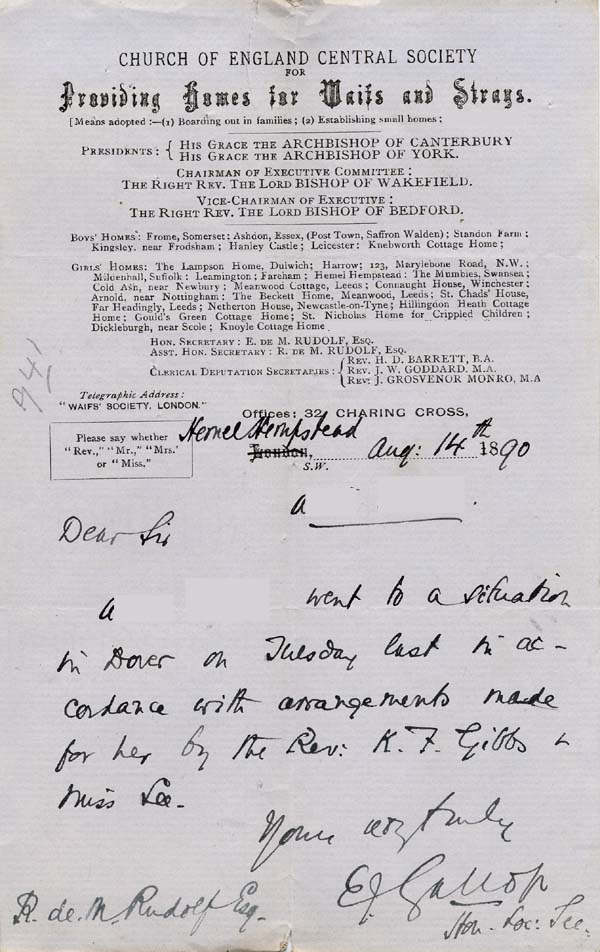 CHURCH OF ENGLAND CENTRAL SOCIETY
FOR
Providing Homes for Waifs and Strays.
[Means adopted :—(1) Boarding out in families ; (2) Establishing small homes :
PRESIDENTS : { HIS GRACE THE ARCHBISHOP OF CANTERBURY
HIS GRACE THE ARCHBISHOP OF YORK.
CHAIRMAN OF EXECUTIVE COMMITTEE :
THE RIGHT REV. THE LORD BISHOP OF WAKEFIELD.
VICE-CHAIRMAN OF EXECUTIVE :
THE RIGHT REV. THE LORD BISHOP OF BEDFORD.
BOYS' HOMES : Frome, Somerset : Ashdon, Essex, (Post Town, Saffron Walden) ; Standon Farm ;
Kingsley, near Frodsham ; Hanley Castle ; Leicester : Knebworth Cottage Home ;
GIRLS' HOMES: The Lampson Home, Dulwich; Harrow; 123, Marylebone Road, N.W. ;
Mildenhall, Suffolk ; Leamington ; Fareham ; Hemel Hempstead : The Mumbles, Swansea ;
Cold Ash, near Newbury ; Meanwood Cottage, Leeds ; Connaught House, Winchester ;
Arnold, near Nottingham : The Beckett Home, Meanwood, Leeds ; St. Chads' House,
Far Headingly, Leeds ; Netherton House, Newcastle-on-Tyne ; Hillingdon Heath Cottage
Home ; Gould's Green Cottage Home ; St. Nicholas Home for Crippled Children ;
Dickleburgh, near Scole ; Knoyle Cottage Home
HON. SECRETARY : E. DE M. RUDOLF, ESQ.
ASST. HON. SECRETARY : R. DE M. RUDOLF, ESQ.
CLERICAL DEPUTATION SECRETARIES : { REV. H. D. BARRETT, B.A.
REV. J. W. GODDARD. M.A.
REV. J. GROSVENOR MONRO, M.A
941
Telegraphic Address :
"WAIFS' SOCIETY, LONDON."
Offices: 32, CHARING CROSS,
Please say whether
"Rev.," "Mr.," "Mrs.'
or "Miss."
Hemel Hempstead
London, Aug: 14th 1890
S.W.
A
Dear Sir
A went to a situation
in Dover on Tuesday last in ac-
cordance with arrangements made
for her by the Rev: K. F. Gibbs &
Miss Lee.
Yours very truly
E J Gallop
R. de. M. Rudolf Esq.
Hon. Loc: Sec.